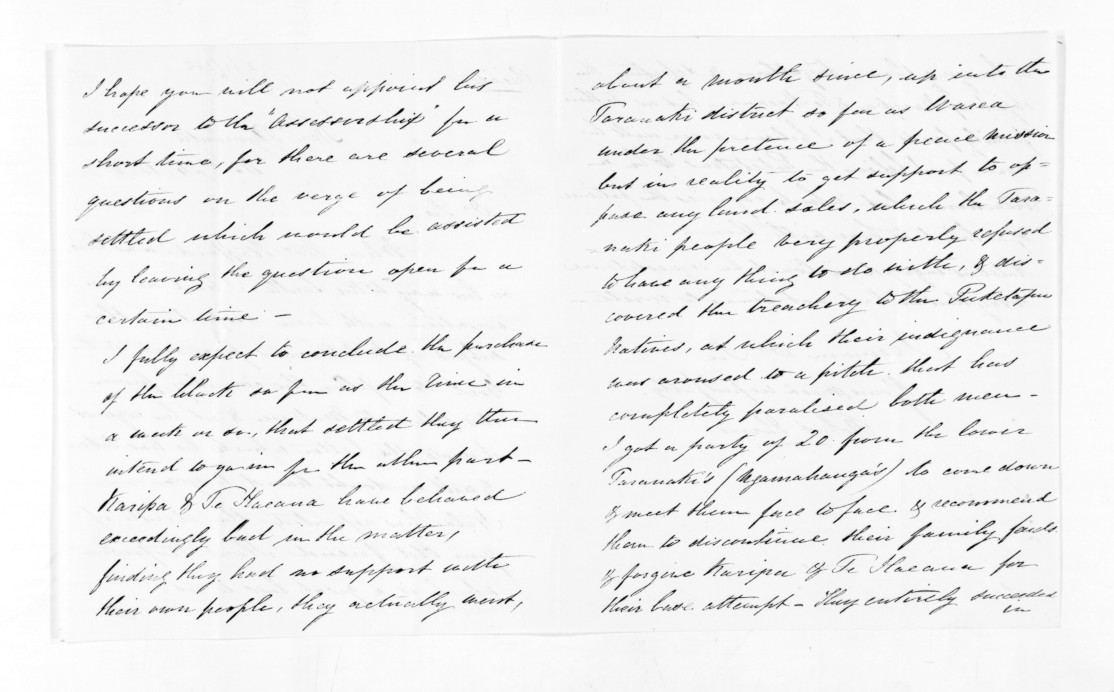 I hope you will not appoint his
successor to the "Assessorship" for a
short time, for there are several
questions on the verge of being
settled which would be assisted
by leaving the question open for a
certain time —
I fully expect to conclude the purchase
of the block so far as the line in
a week or so. that settled they then
intend to go in for the other part —
Karipa & Te Hacana have behaved
exceedingly bad in the matter,
finding they had no support with
their own people, they actually went,
about a month since, up into the
Taranaki district so far as Warea
under the pretence of a peace mission
but in reality to get support to op=
pose any land sales, which the Tara=
naki people very properly refused
to have any thing to do with, & dis=
covered the treachery to the Puketapu
Natives, at which their indignance
was aroused to a pitch that has
completely paralised both men —
I got a party of 20 from the lower
Taranaki's (Ngamahanga's) to come down
& meet them face to face & recommend
them to discontinue their family feuds
& forgive Karipa & Te Hacana for
their base attempt — they entirely succeeded
in